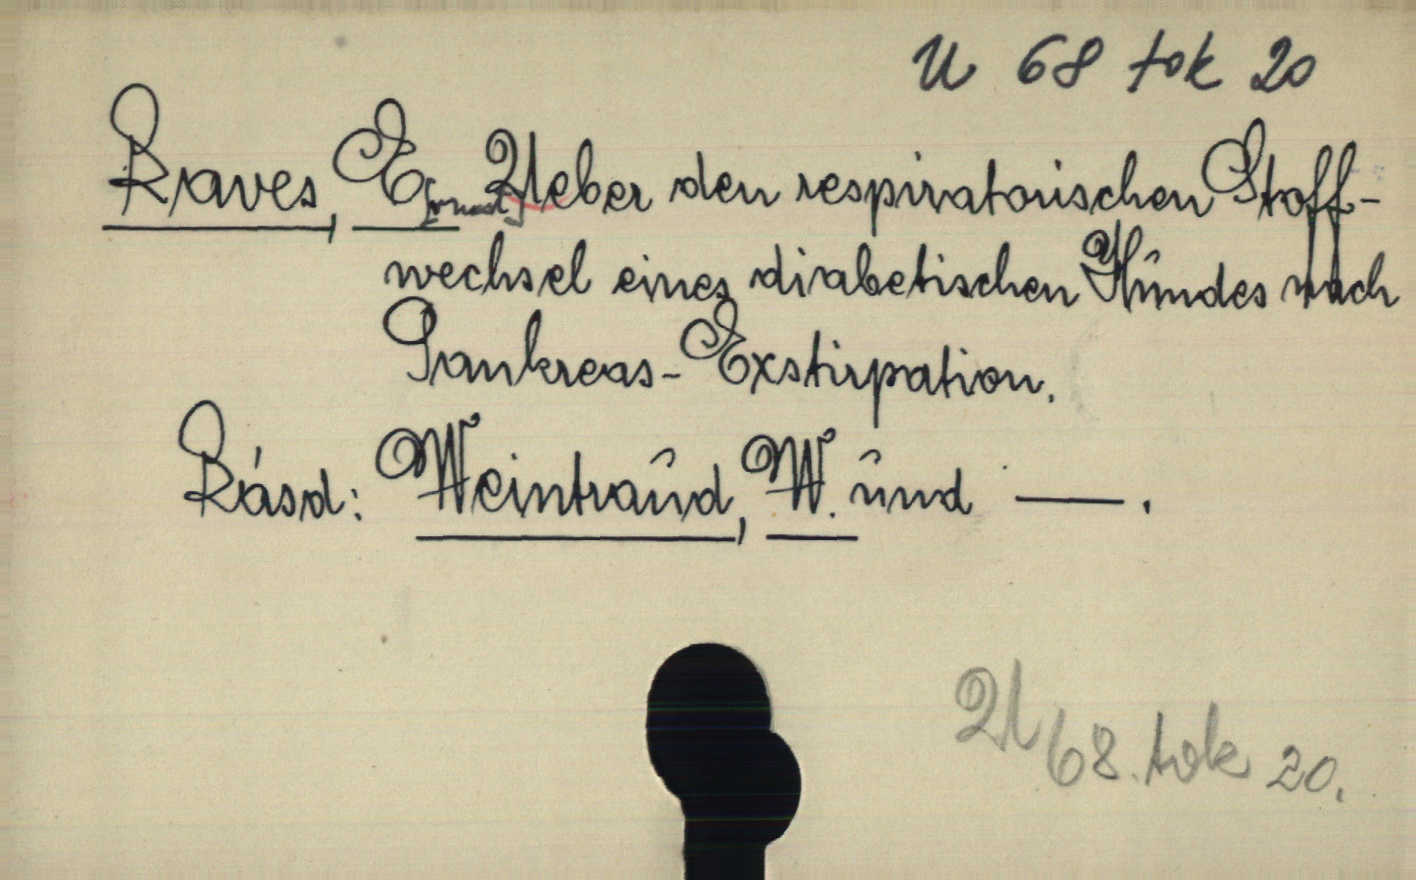 U 68 tok 20
Raves, E[rnest] Ueber den respiratorischen Stoff-
wechsel eines diabetischen Hûndes nach
Pankreas-Exstirpation.
Lásd: Weintraûd, W. ûnd —.
U 68. tok 20.